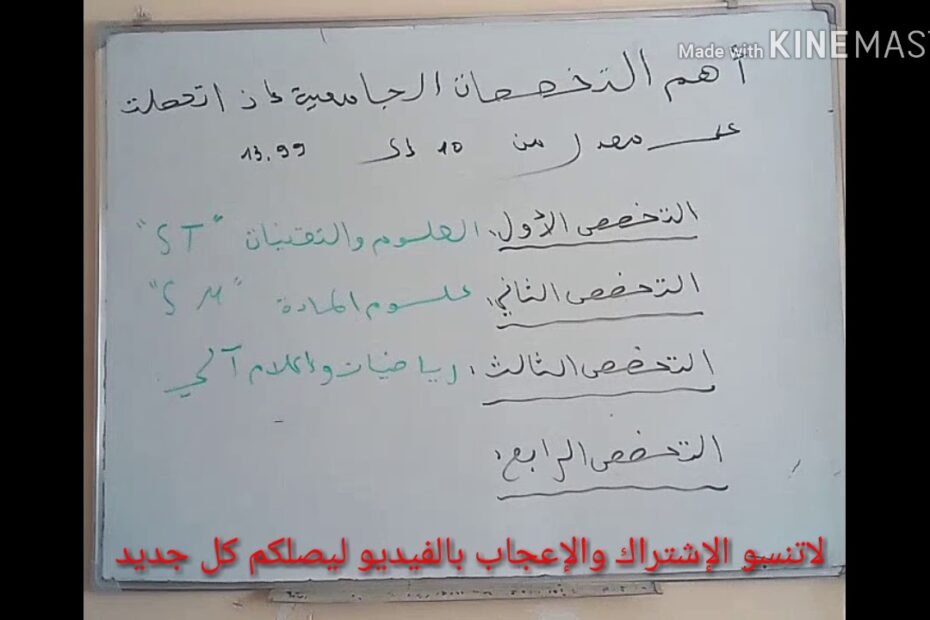 Made with KINEMAST
أهم التخصصات الجامعية إذ اتحصلت
على معدل من 10 إلى 13.99
التخصص الأول: العلوم والتقنيات "ST"
التخصص الثاني: علوم المادة "SM"
التخصص الثالث: رياضيات وإعلام آلي
التخصص الرابع:
لاتنسو الإشتراك والإعجاب بالفيديو ليصلكم كل جديد